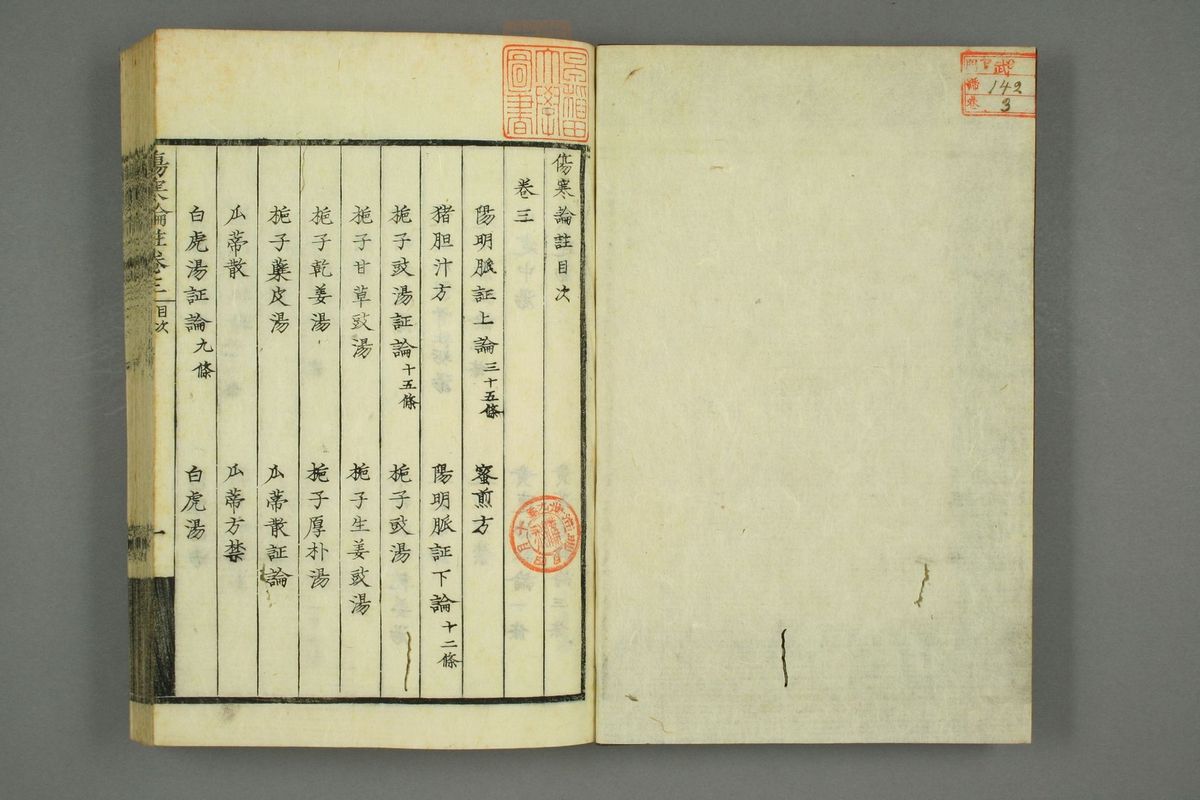 武
142
3
早稲田大學圖書
傷寒論註目次
卷三
陽明脈証上論三十五條　蜜煎方
猪胆汁方　陽明脈証下論十二條
梔子豉湯証論十五條　梔子豉湯
梔子甘草豉湯　梔子生姜豉湯
梔子乾姜湯　梔子厚朴湯
梔子蘗皮湯　瓜蒂散証論
瓜蒂散　瓜蒂方禁
白虎湯証論九條　白虎湯
傷寒論註卷三　目次　一